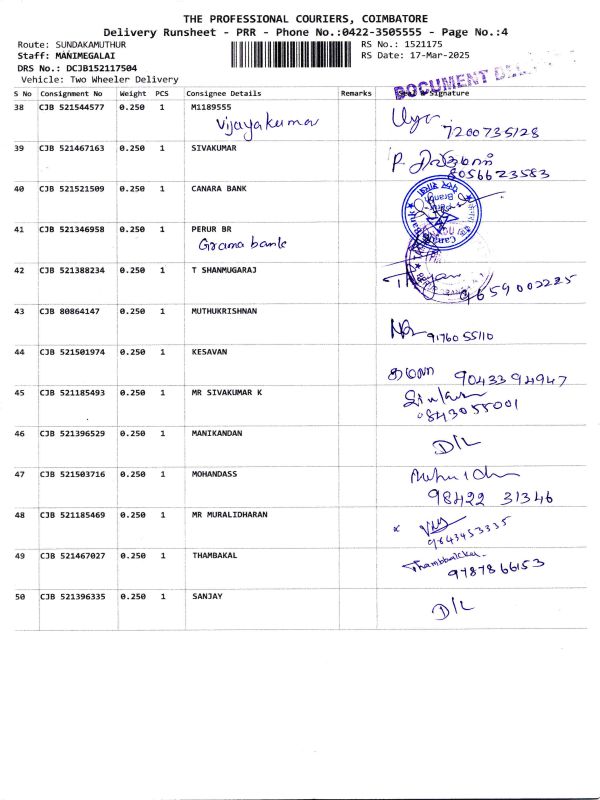 THE PROFESSIONAL COURIERS, COIMBATORE
Delivery Runsheet - PRR - Phone No.:0422-3505555 - Page No.:4
Route: SUNDAKAMUTHUR RS No.: 1521175
Staff: MANIMEGALAI RS Date: 17-Mar-2025
DRS No.: DCJB152117504
Vehicle: Two Wheeler Delivery
DOCUMENT
S No Consignment No Weight PCS Consignee Details Remarks Signature
38 CJB 521544577 0.250 1 M1189555
Vijayakumar
7200735128
39 CJB 521467163 0.250 1 SIVAKUMAR
8056623583
40 CJB 521521509 0.250 1 CANARA BANK
41 CJB 521346958 0.250 1 PERUR BR
Grama bank
42 CJB 521388234 0.250 1 T SHANMUGARAJ
9659002225
43 CJB 80864147 0.250 1 MUTHUKRISHNAN
9176055110
44 CJB 521501974 0.250 1 KESAVAN
9043394947
45 CJB 521185493 0.250 1 MR SIVAKUMAR K
9843055001
46 CJB 521396529 0.250 1 MANIKANDAN
D/L
47 CJB 521503716 0.250 1 MOHANDASS
98422 31346
48 CJB 521185469 0.250 1 MR MURALIDHARAN
9843453335
49 CJB 521467027 0.250 1 THAMBAKAL
9787866153
50 CJB 521396335 0.250 1 SANJAY
D/L